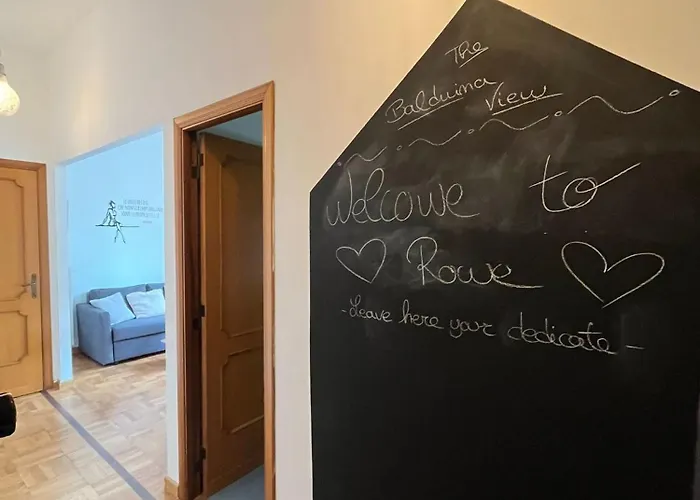 The
Balduina
View
Welcome to
Rome
- Leave here your dedicate -